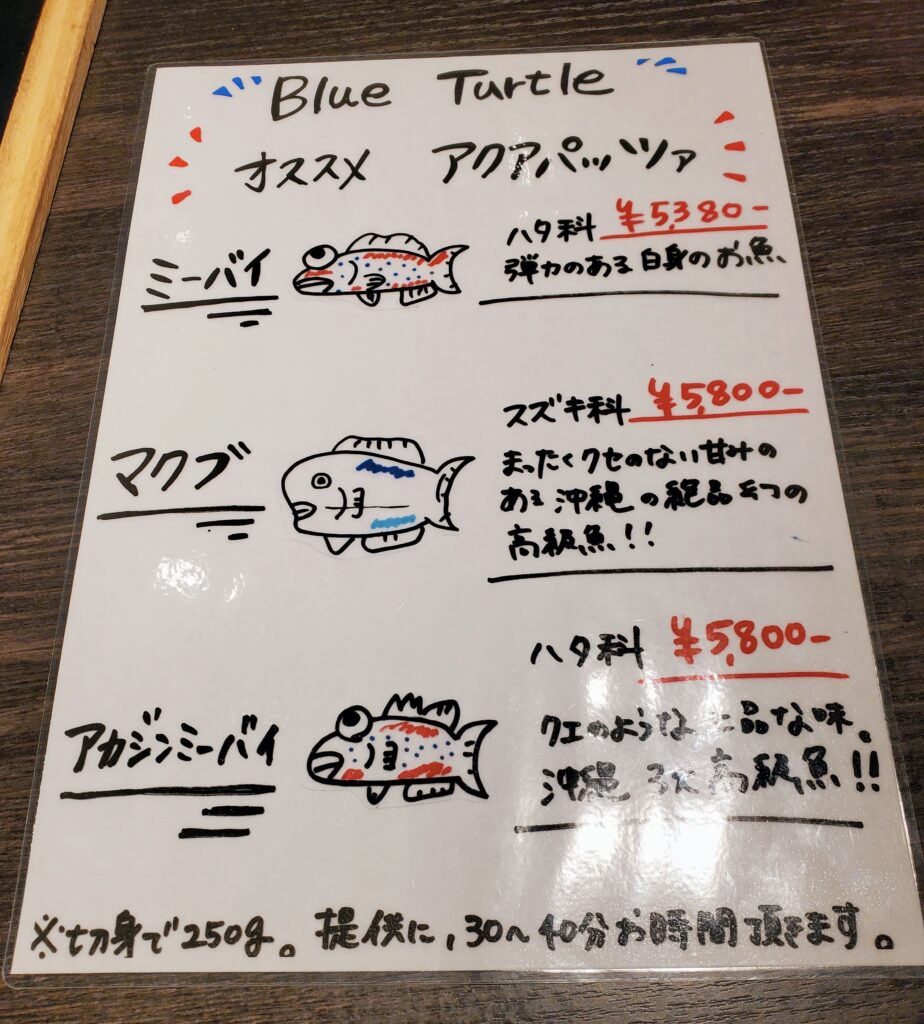 Blue Turtle
オススメ アクアパッツァ
ミーバイ
ハタ科 ¥5,380-
弾力のある白身のお魚
マクブ
スズキ科 ¥5,800-
まったくクセのない甘みの
ある沖縄の絶品
高級魚!!
アカジンミーバイ
ハタ科 ¥5,800-
クエのような上品な味。
沖縄3大高級魚!!
※切身で250g。提供に,30〜40分お時間頂きます。